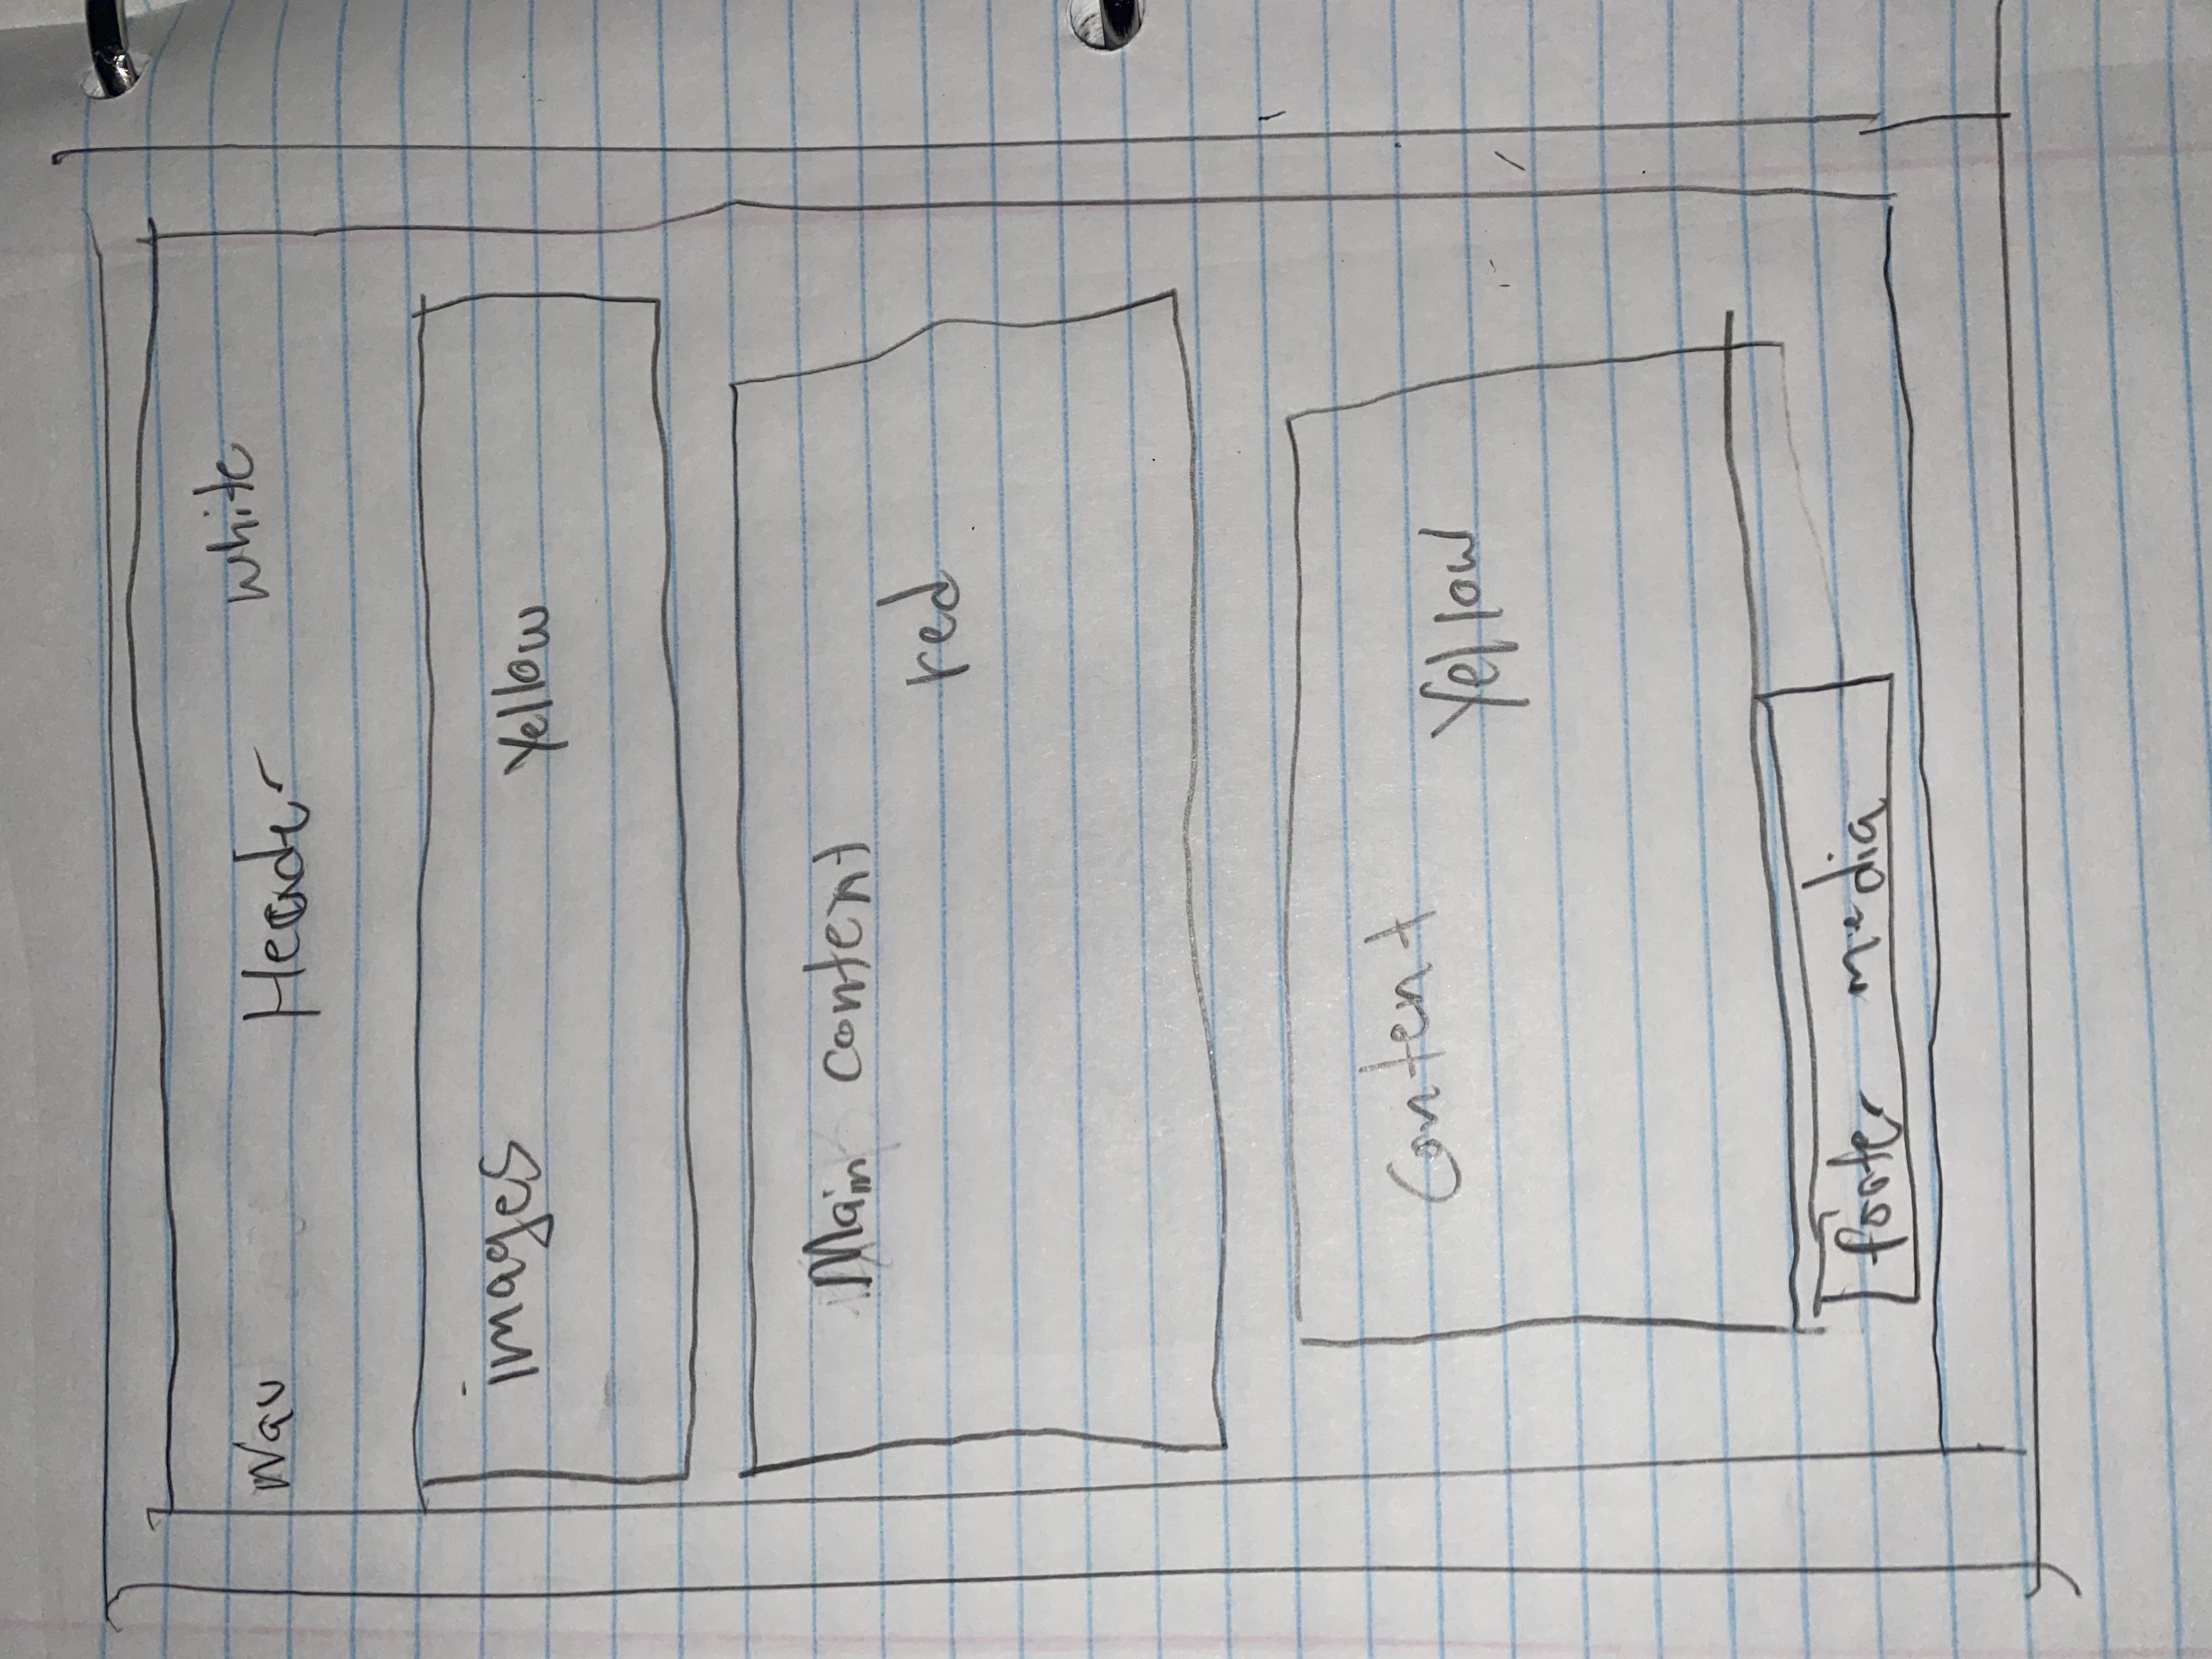 Nav Header white
images Yellow
Main content
red
Content
Yellow
footer media